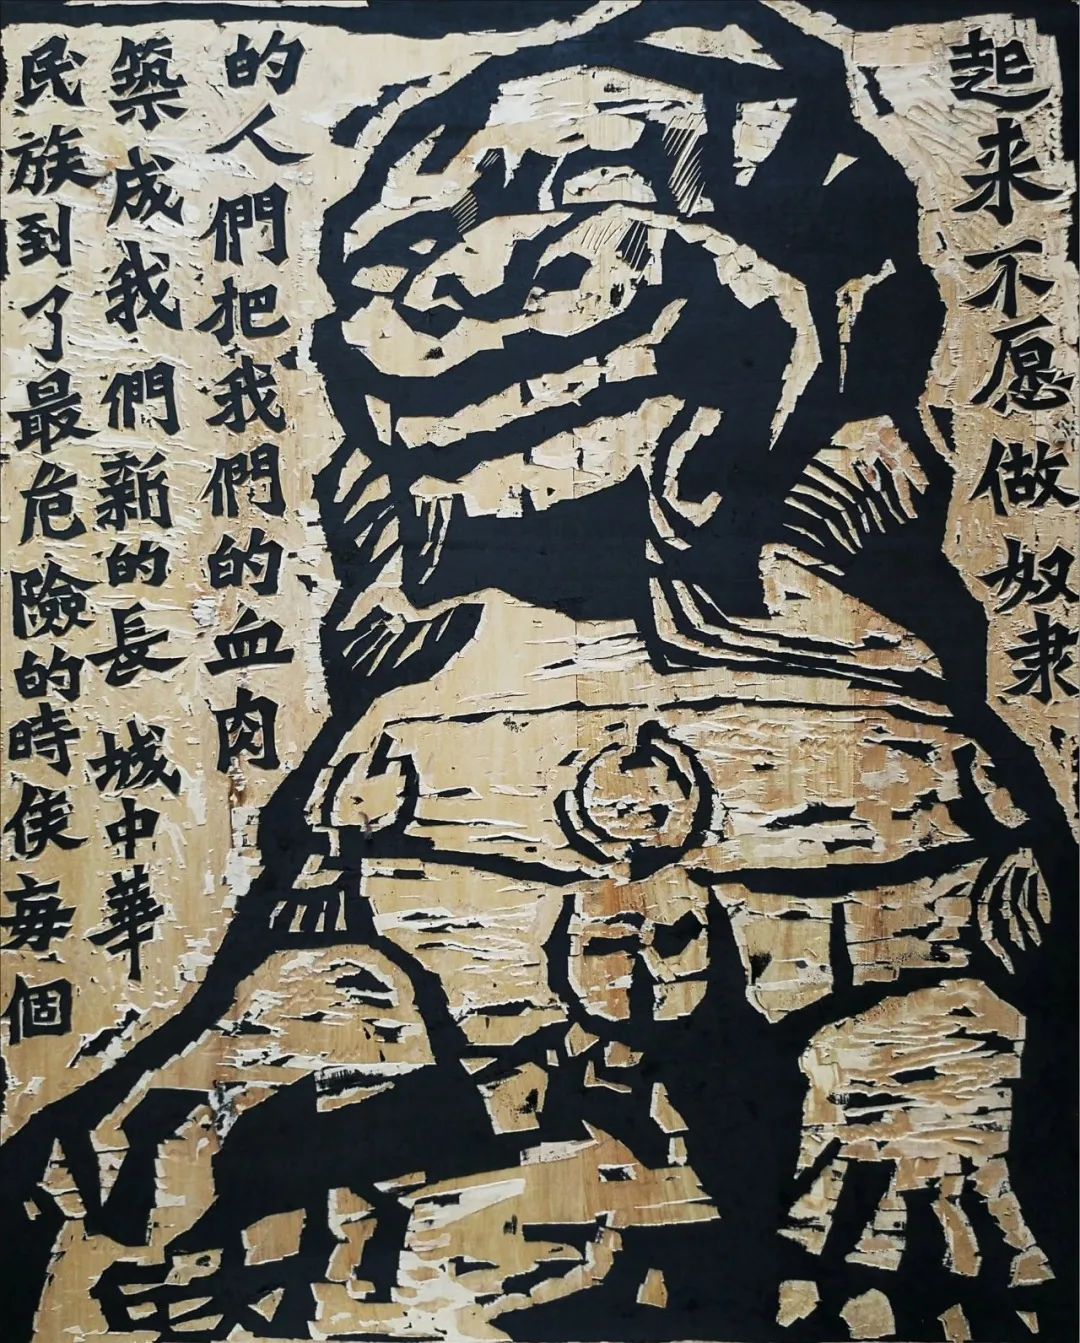 起来不愿做奴隶
的人們把我們的血肉
築成我們新的長城中華
民族到了最危險的時侯每個